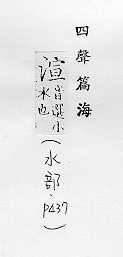 四聲篇海
渲 音選小水也(水部.P437)